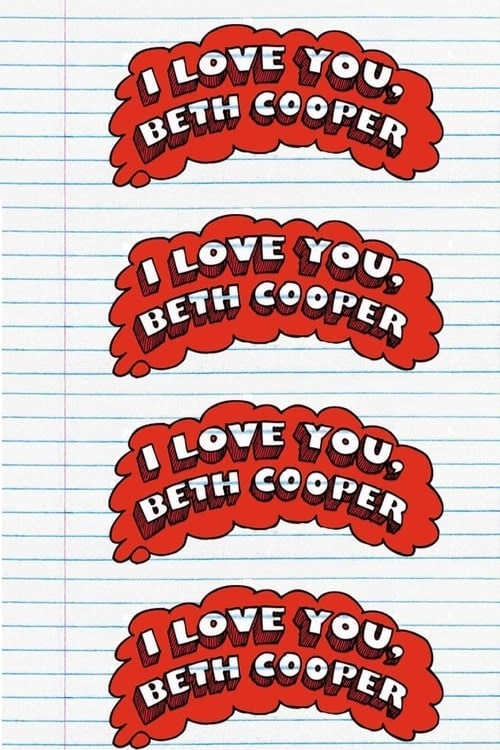 I LOVE YOU,
BETH COOPER
I LOVE YOU,
BETH COOPER
I LOVE YOU,
BETH COOPER
I LOVE YOU,
BETH COOPER